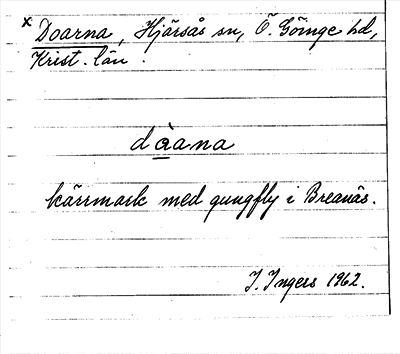 x Doarna, Hjärsås sn, Ö. Göinge hd,
Krist. län.
dàana
kärrmark med gungfly i Breanäs.
I. Ingers 1962.